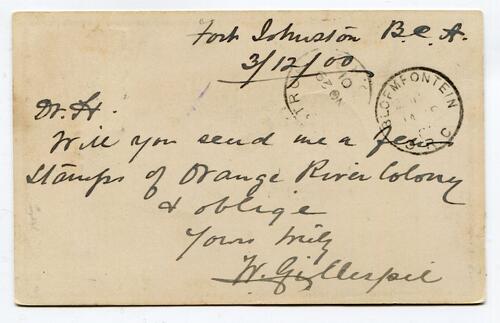 Fort Johnston B.C.A.
3/12/00
Will you send me a few
stamps of Orange River Colony
& oblige
Yours truly
W. Gillespie
BLOEMFONTEIN